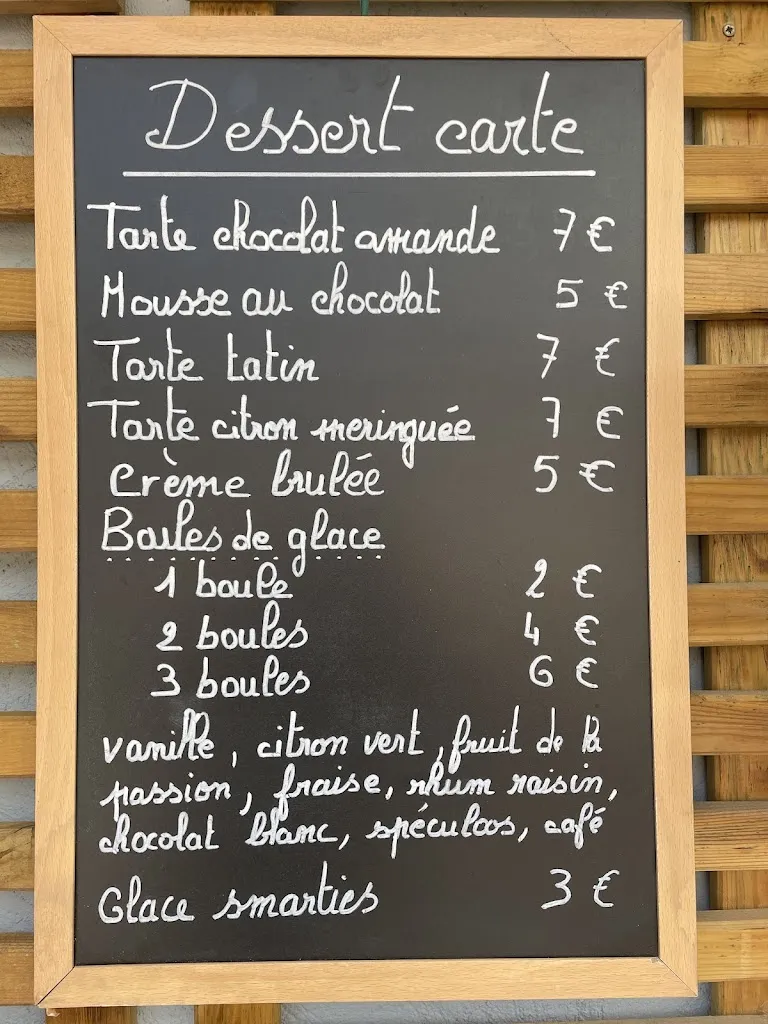 Dessert carte
Tarte chocolat amande 7 €
Mousse au chocolat 5 €
Tarte tatin 7 €
Tarte citron meringuée 7 €
Crème brulée 5 €
Boules de glace
1 boule 2 €
2 boules 4 €
3 boules 6 €
vanille, citron vert, fruit de la
passion, fraise, rhum raisin,
chocolat blanc, spéculoos, café
Glace smarties 3 €